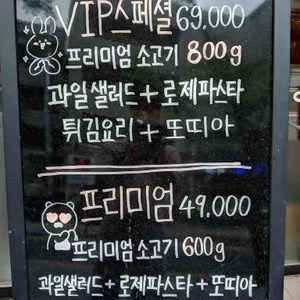 VIP스페셜 69,000
프리미엄 소고기 800g
과일샐러드 + 로제파스타
튀김요리 + 또띠아
프리미엄 49.000
프리미엄 소고기 600g
과일샐러드 + 로제파스타 + 또띠아